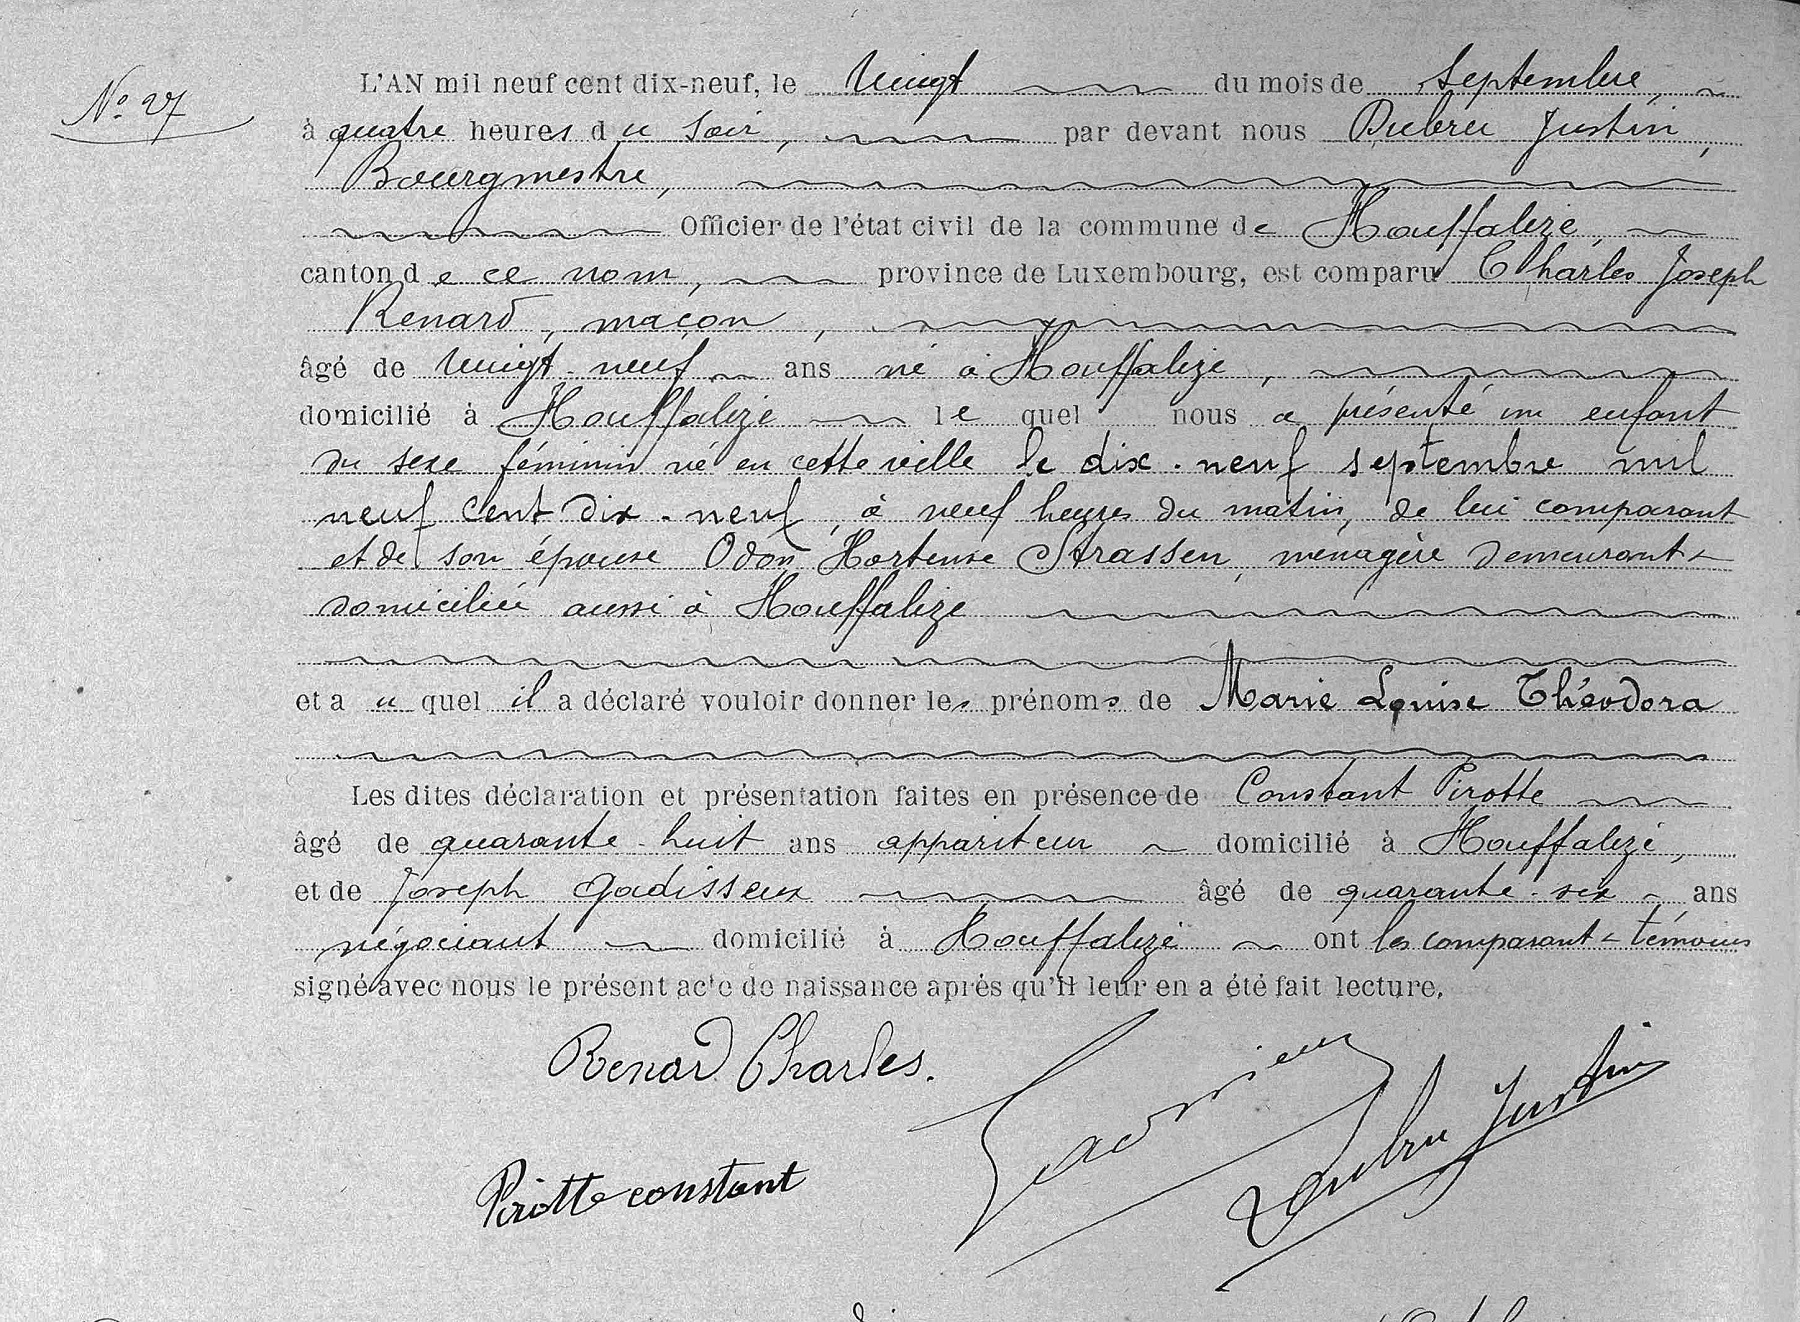 N° 27
L'AN mil neuf cent dix-neuf, le vingt du mois de septembre,
à quatre heures du soir, par devant nous Dubru Justin,
Bourgmestre,
Officier de l'état civil de la commune de Houffalize,
canton de ce nom, province de Luxembourg, est comparu Charles Joseph
Renard, maçon,
âgé de vingt-neuf ans né à Houffalize,
domicilié à Houffalize lequel nous a présenté un enfant
du sexe féminin né en cette ville le dix-neuf septembre mil
neuf cent dix-neuf, à neuf heures du matin, de lui comparant
et de son épouse Odon Hortense Strassen, ménagère demeurant &
domiciliée aussi à Houffalize
et auquel il a déclaré vouloir donner les prénoms de Marie Louise Théodora
Les dites déclaration et présentation faites en présence de Constant Pirotte
âgé de quarante-huit ans appariteur domicilié à Houffalize,
et de Joseph Gadisseux âgé de quarante-six ans
négociant domicilié à Houffalize ont les comparant & témoins
signé avec nous le présent acte de naissance après qu'il leur en a été fait lecture.
Renard Charles.
Dubru Justin
Pirotte constant